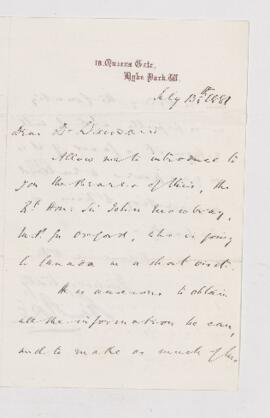 18, Queens Gate,
Hyde Park. W.
July 13th 1881
Dear Dr Dawson
Allow me to introduce to
you the bearer of this, the
Rt Hon: Sir John Mowbray,
M.P. for Oxford, who is going
to Canada on a short visit.
He is anxious to obtain
all the information he can,
and to make as much of his